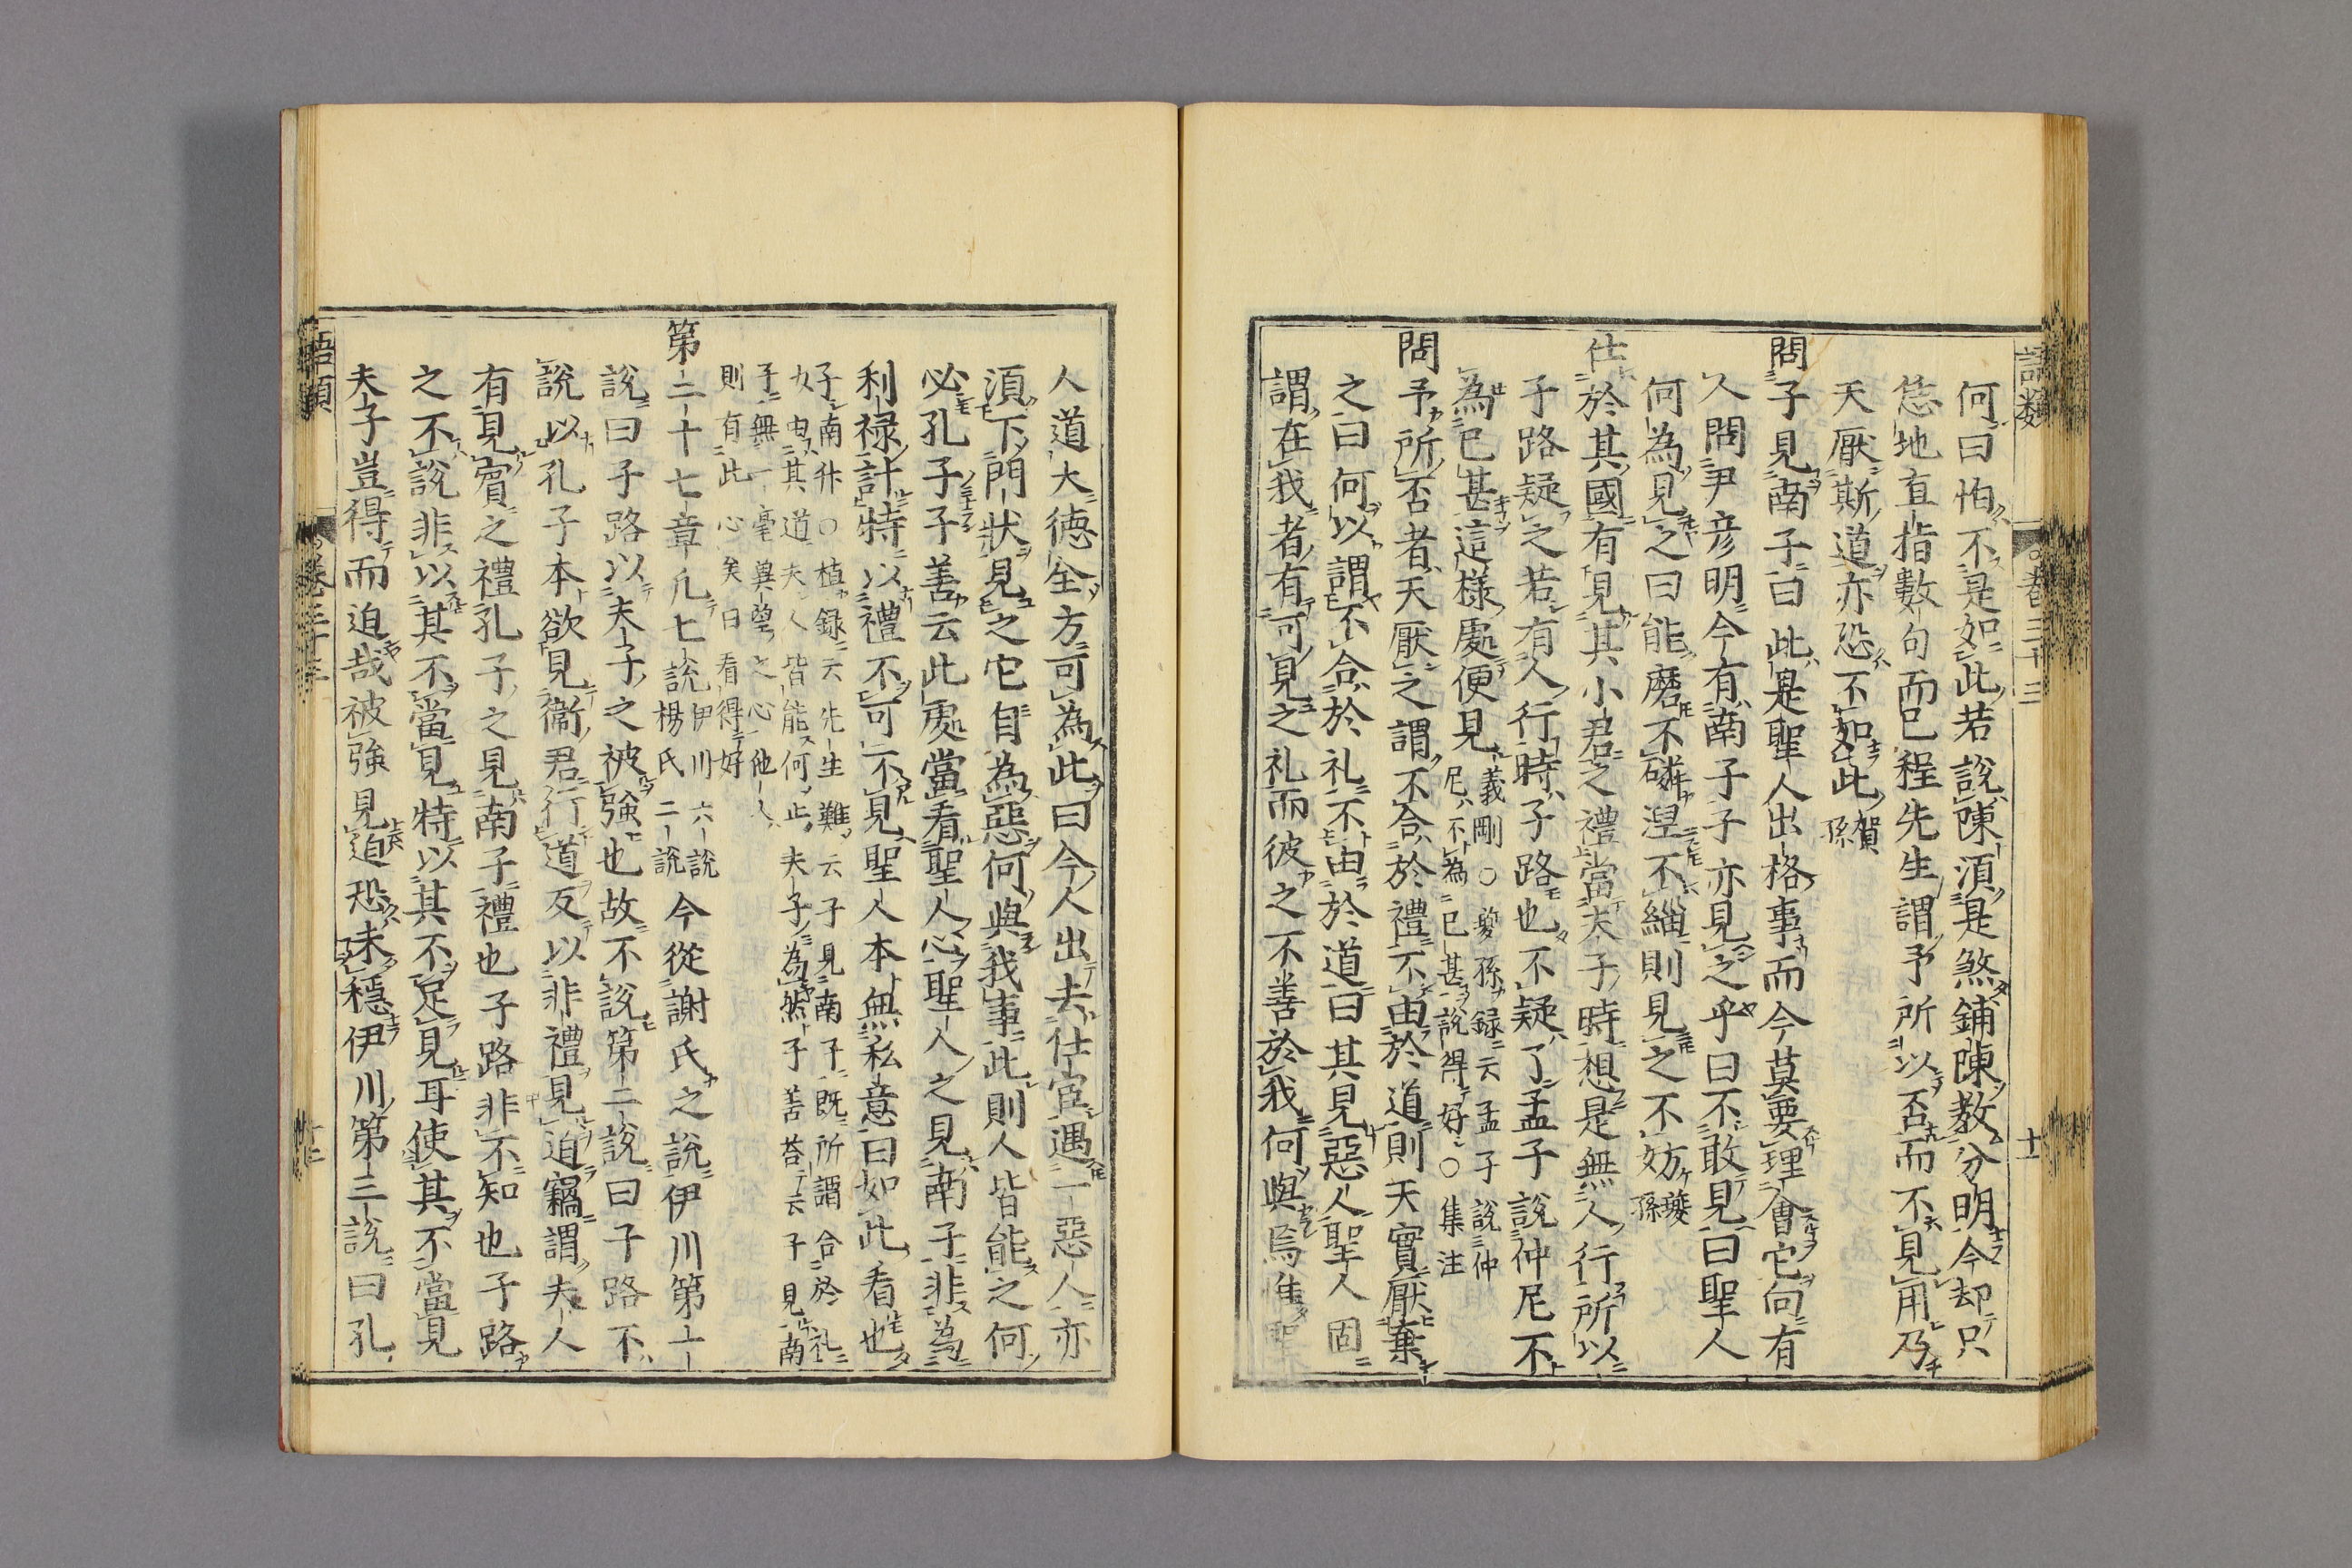 語類 卷三十三 十一
何曰怕不是如此若說陳須是煞鋪陳教分明今却只
恁地直指數句而已程先生謂予所以否而不見用乃
天厭斯道亦恐不如此賀孫
問子見南子曰此是聖人出格事而今莫要理會它向有
人問尹彦明今有南子子亦見之乎曰不敢見曰聖人
何為見之曰能磨不磷涅不緇則見之不妨夔孫
仕於其國有見其小君之禮當夫子時想是無人行所以
子路疑之若有人行時子路也不疑了孟子說仲尼不
為已甚這樣處便見義剛○夔孫録云孟子說仲
尼不為已甚說得好○集注
問予所否者天厭之謂不合於禮不由於道則天實厭棄
之曰何以謂不合於礼不由於道曰其見惡人聖人固
謂在我者有可見之礼而彼之不善於我何與焉惟聖
人道大徳全方可為此曰今人出去仕宦遇一惡人亦
須下門狀見之它自為惡何與我事此則人皆能之何
必孔子子善云此處當看聖人心聖人之見南子非為
利祿計特以禮不可不見聖人本無私意曰如此看也
子南升○植録云先生難云子見南子既所謂合於礼
由其道夫人皆能何止夫子為然子善荅云子見南
子無一毫冀望之心他人
則有此心矣曰看得好
第二十七章凡七說伊川六說
楊氏二說今從謝氏之說伊川第一
說曰子路以夫子之被強也故不說第二說曰子路不
說以孔子本欲見衛君行道反以非禮見迫竊謂夫人
有見賓之禮孔子之見南子禮也子路非不知也子路
之不說非以其不當見特以其不足見耳使其不當見
夫子豈得而迫哉被強見迫恐未穩伊川第三說曰孔
語類 卷三十三 十二